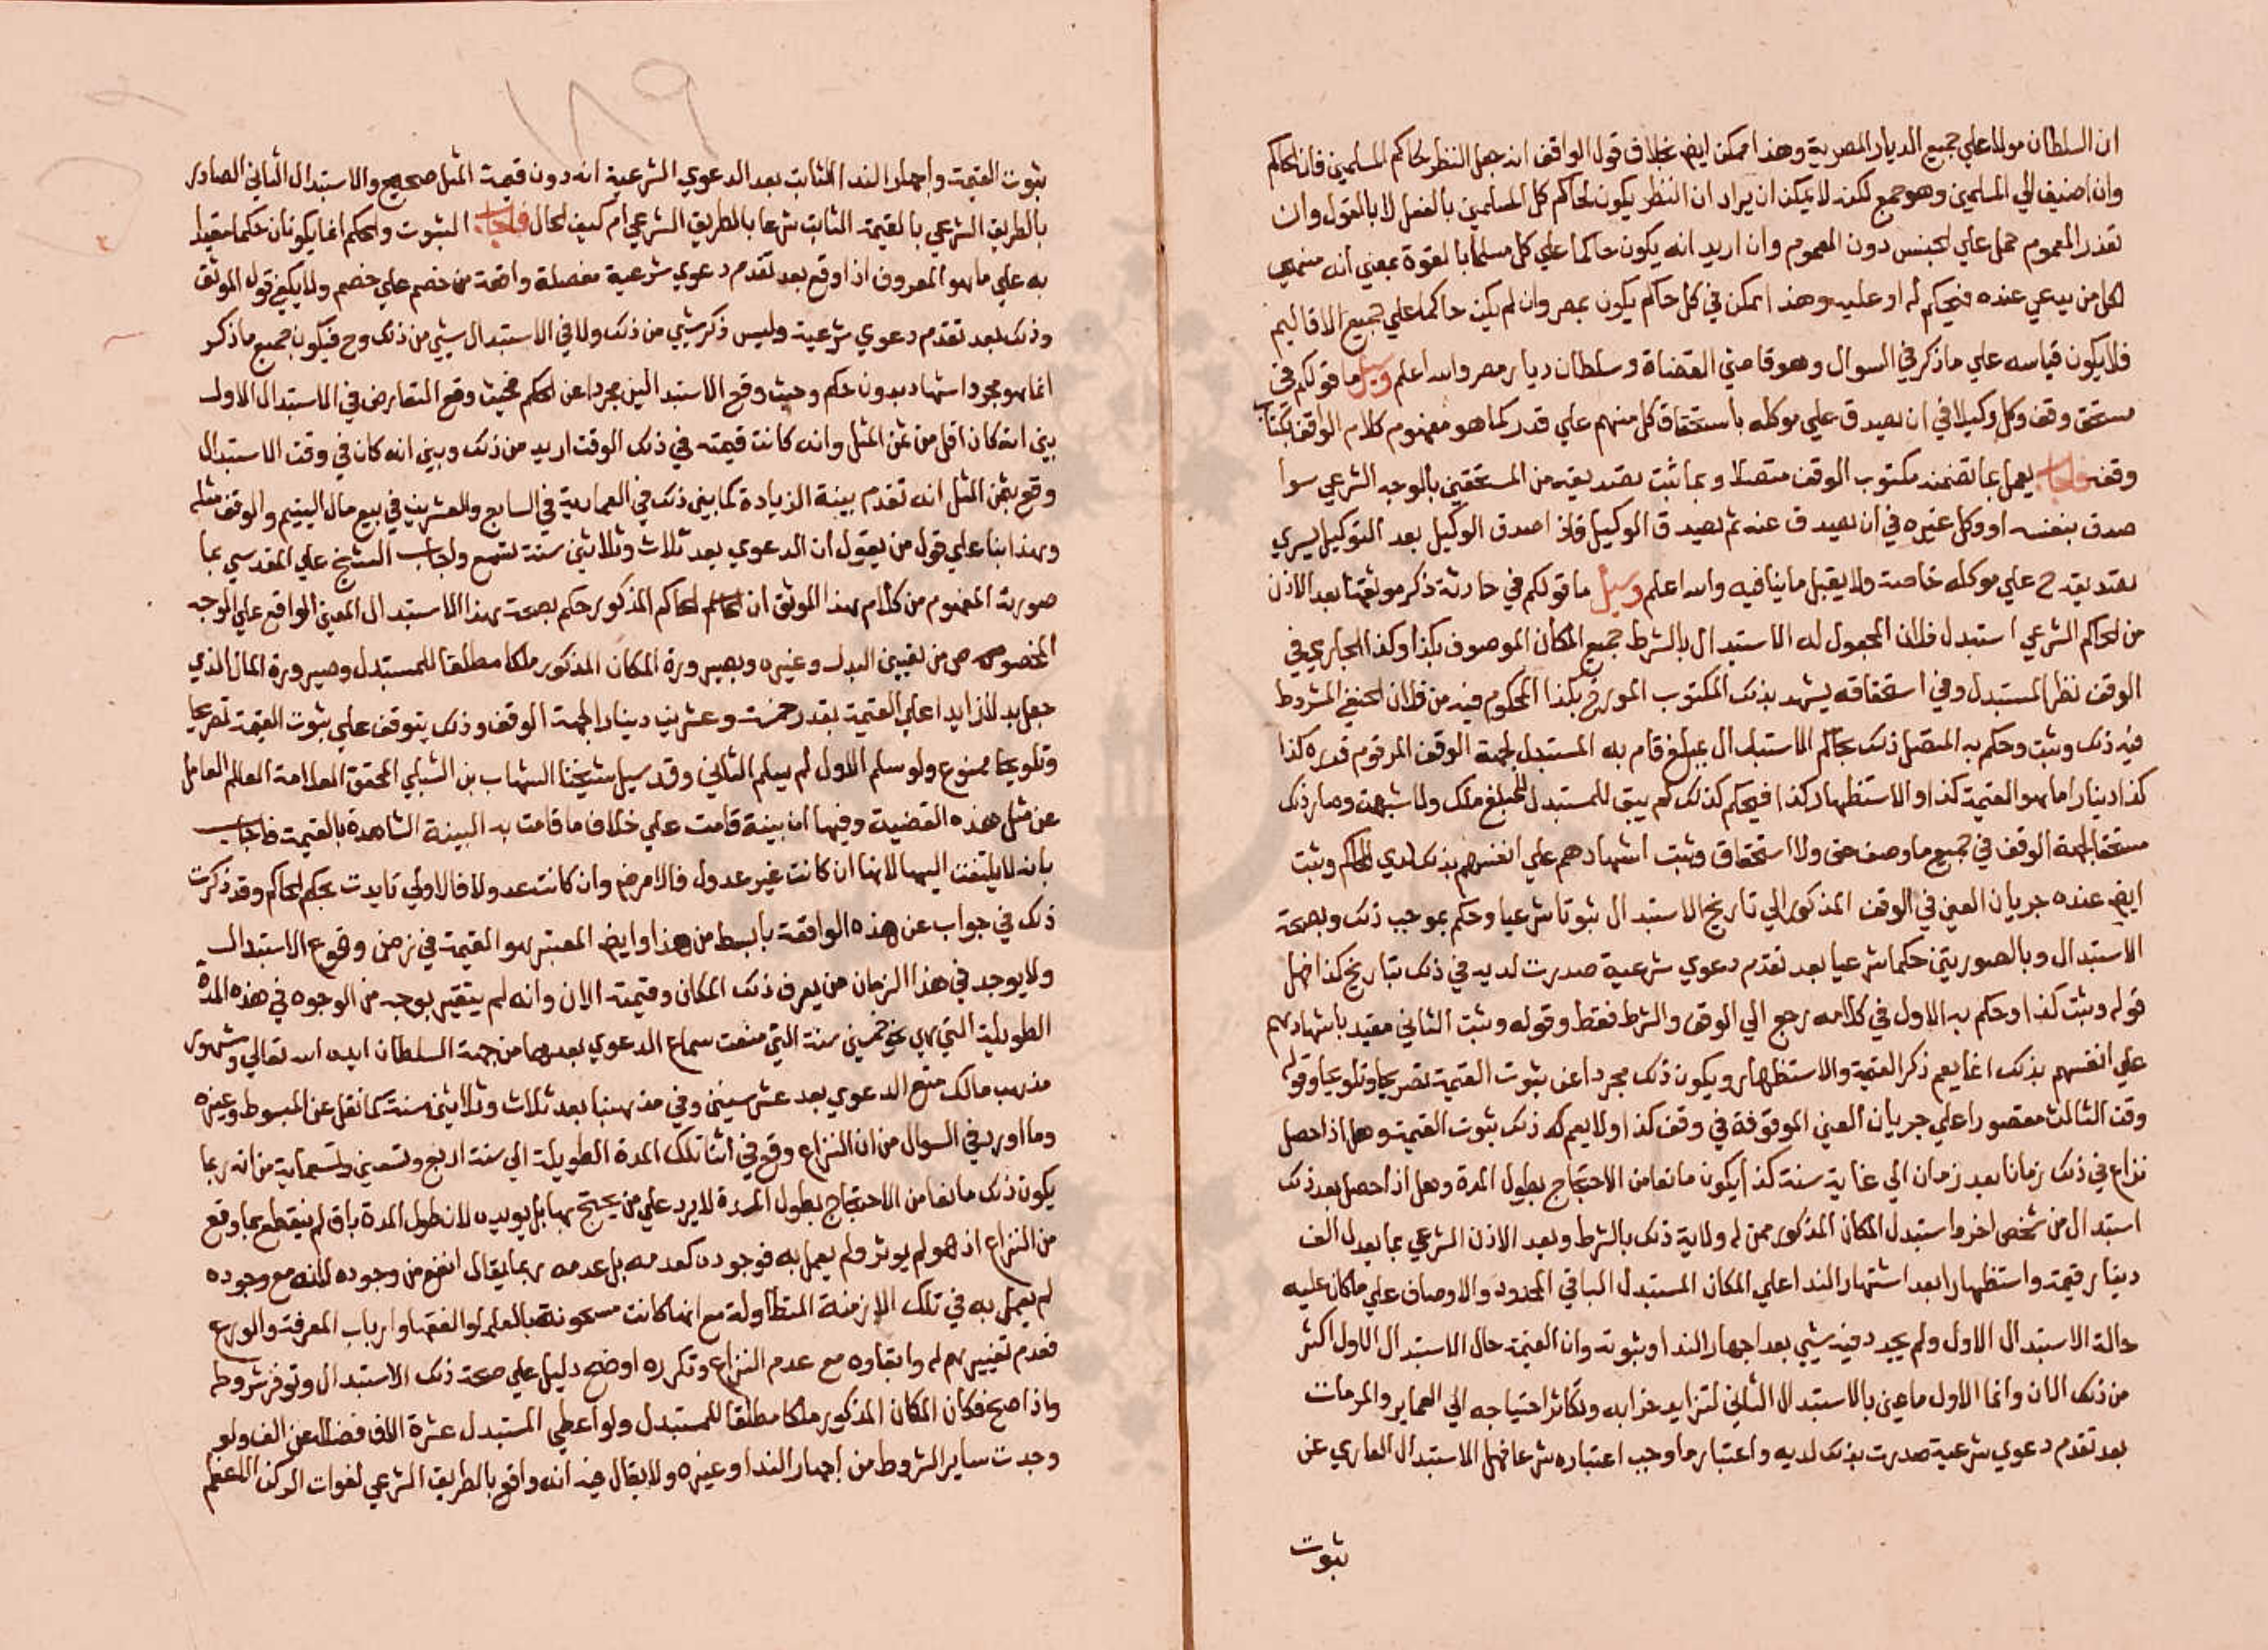 ان السلطان مولانا علي جميع الديار المصرية وهذا ممكن ايض بخلاف قول الواقف انه جعل النظر لحاكم المسلمين فان الحاكم
وان اضيف الي المسلمين وهو جمع لكنه لا يمكن ان يراد ان النظر يكون لحاكم كل المسلمين بالفعل لا بالقول وان
تعذر العموم حمل علي الجنس دون العموم وان اريد انه يكون حاكما علي كل مسلم بالقوة بمعني انه
لكل من يدعي عنده فيحكم له او عليه وهذا ممكن في كل حاكم يكون بمصر وان لم يكن حاكما علي جميع الاقاليم
فلا يكون قياسه علي ما ذكر في السوال وهو قاضي القضاة وسلطان ديار مصر والله اعلم وسيل ما قولكم في
مستحق وقف وكل وكيلا في ان يصدق علي موكله باستحقاق كل منهم علي قدر كما هو مفهوم كلام الواقف بكتاب
وقفه فاجاب يعمل بما تضمنه مكتوب الوقف متصلا وبما ثبت تصديقه من المستحقين بالوجه الشرعي سوا
صدق بنفسه او وكل غيره في ان يصدق عنه ثم يصدق الوكيل فاذا صدق الوكيل بعد التوكيل يسري
تصديقه ح علي موكله خاصة ولا يقبل ما ينافيه والله اعلم وسيل ما قولكم في حادثة ذكر موثقها بعد الاذن
من الحاكم الشرعي استبدل فلان المجعول له الاستبدال بالشرط جميع المكان الموصوف بكذا وكذا الجاري في
الوقف نظر المستبدل وفي استحقاقه يشهد بذلك المكتوب المورخ بكذا المحكوم فيه من فلان الحنفي المشروط
فيه ذلك وثبت وحكم به المتصل ذلك بحاكم الاستبدال بمبلغ قام به المستبدل لجهة الوقف المرقوم قدره كذا
كذا دينارا ما هو القيمة كذا والاستظهار كذا فبحكم كذلك لم يبق للمستبدل المبلغ ملك ولا شبهة وصار ذلك
مستحقا لجهة الوقف في جميع ما وصف حق ولا استحقاق وثبت اشهادهم علي انفسهم بذلك لدي الحاكم وثبت
ايض عنده جريان العين في الوقف المذكور الي تاريخ الاستبدال ثبوتا شرعيا وحكم بموجب ذلك وبصحة
الاستبدال وبالصوريتين حكما شرعيا بعد تقدم دعوي شرعية صدرت لديه في ذلك بتاريخ كذا فهل
قوله وثبت كذا وحكم به الاول في كلامه رجع الي الوقف والشرط فقط وقوله وثبت الثاني مقيد باشهادهم
علي انفسهم بذلك انما يعم ذكر القيمة والاستظهار ويكون ذلك مجردا عن ثبوت القيمة تصريحا وتلويحا وقوله
وقت الثالث مقصورا علي جريان العين الموقوفة في وقف كذا ولا يعم كله ذلك ثبوت القيمة وهل اذا حصل
نزاع في ذلك زمانا بعد زمان الي غاية سنة كذا يكون مانعا من الاحتجاج بطول المدة وهل اذا حصل بعد ذلك
استبدال من شخص اخر واستبدل المكان المذكور ممن له ولاية ذلك بالشرط وبعد الاذن الشرعي بما يعدل الف
دينار قيمة واستظهارا بعد اشتهار الندا علي المكان المستبدل الباقي الحدود والاوصاف علي ما كان عليه
حالة الاستبدال الاول ولم يجدد فيه شيي بعد اجهار الندا وثبوته وان القيمة حال الاستبدال الاول اكثر
من ذلك الان وانما الاول ما عين بالاستبدال الثاني لتزايد خرابه وتكاثر احتياجه الي العماير والمرمات
بعد تقدم دعوي شرعية صدرت بذلك لديه واعتبار ما وجب اعتباره شرعا فهل الاستبدال العاري عن
ثبوت
١٨٩
ثبوت القيمة واجهار الندا الثابت بعد الدعوي الشرعية انه دون قيمة المثل صحيح والاستبدال الثاني الصادر
بالطريق الشرعي بالقيمة الثابت شرعا بالطريق الشرعي ام كيف الحال فاجاب الثبوت والحكم انما يكونان حكما مقيدا
به علي ما هو المعروف اذا وقع بعد تقدم دعوي شرعية مفصلة واضحة من خصم علي خصم ولا يكفي قول الموثق
وذلك بعد تقدم دعوي شرعية وليس ذكر شيي من ذلك ولا في الاستبدال شيي من ذلك وح فيكون جميع ما ذكر
انما هو مجرد اشهاد بدون حكم وحيث وقع الاستبدالين مجردا عن الحكم فحيث وقع التعارض في الاستبدال الاول
بين انه كان اقل من ثمن المثل وانه كانت قيمته في ذلك الوقت ازيد من ذلك وبين انه كان في وقت الاستبدال
وقع بثمن المثل انه تقدم بينة الزيادة كما بين ذلك في العمادية في السابع والعشرين في بيع مال اليتيم والوقف مثله
وهذا بنا علي قول من يقول ان الدعوي بعد ثلاث وثلاثين سنة تسمع واجاب الشيخ علي المقدسي بما
صورته المفهوم من كلام هذا الموثق ان الحاكم المذكور حكم بصحة هذا الاستبدال المعين الواقع علي الوجه
المخصوص من تعيين البدل وغيره وبصيرورة المكان المذكور ملكا مطلقا للمستبدل وصيرورة المال الذي
جعل بدلا زايدا علي القيمة بقدر خمسة وعشرين دينارا لجهة الوقف وذلك يتوقف علي ثبوت القيمة تصريحا
وتلويحا ممنوع ولو سلم الاول لم يسلم الثاني وقد سيل شيخنا الشهاب بن الشلبي المحقق العلامة العالم العامل
عن مثل هذه القضية وفيها ان بينة قامت علي خلاف ما قامت به البينة الشاهدة بالقيمة فاجاب
بانه لا يلتفت اليها لانها ان كانت غير عدول فالامر ض وان كانت عدولا فالاولي تايدت بحكم الحاكم وقد ذكرت
ذلك في جواب عن هذه الواقعة بابسط من هذا وايض المعتبر هو القيمة في زمن وقوع الاستبدال
ولا يوجد في هذا الزمان من يعرف ذلك المكان وقيمته الان وانه لم يتغير بوجه من الوجوه في هذه المدة
الطويلة التي هي نحو خمسين سنة التي منعت سماع الدعوي بعدها من جهة السلطان ايده الله تعالي وشهور
مذهب مالك منع الدعوي بعد عشر سنين وفي مذهبنا بعد ثلاث وثلاثين سنة كما نقل عن المبسوط وغيره
وما اورد في السوال من ان النزاع وقع في اثنا تلك المدة الطويلة الي سنة اربع وتسعين وتسعماية من انه ربما
يكون ذلك مانعا من الاحتجاج بطول المدة لا يرد علي من يحتج بها بل يويده لان طول المدة باق لم ينقطع بما وقع
من النزاع اذ هو لم يوثر ولم يعمل به فوجوده كعدمه بل عدمه ربما يقال انفع من وجوده لانه مع وجوده
لم يعمل به في تلك الازمنة المتطاولة مع انها كانت مسحونة بالعلما والفقها وارباب المعرفة والورع
فعدم تغييرهم له وابقاوه مع عدم النزاع وتكرره اوضح دليل علي صحة ذلك الاستبدال وتوفر شروطه
واذا صح فكان المكان المذكور ملكا مطلقا للمستبدل ولو اعطي المستبدل عشرة الاف فضلا عن الف ولو
وجدت ساير الشروط من اجهار الندا وغيره ولا يقال فيه انه واقع بالطريق الشرعي لفوات الركن الاعظم